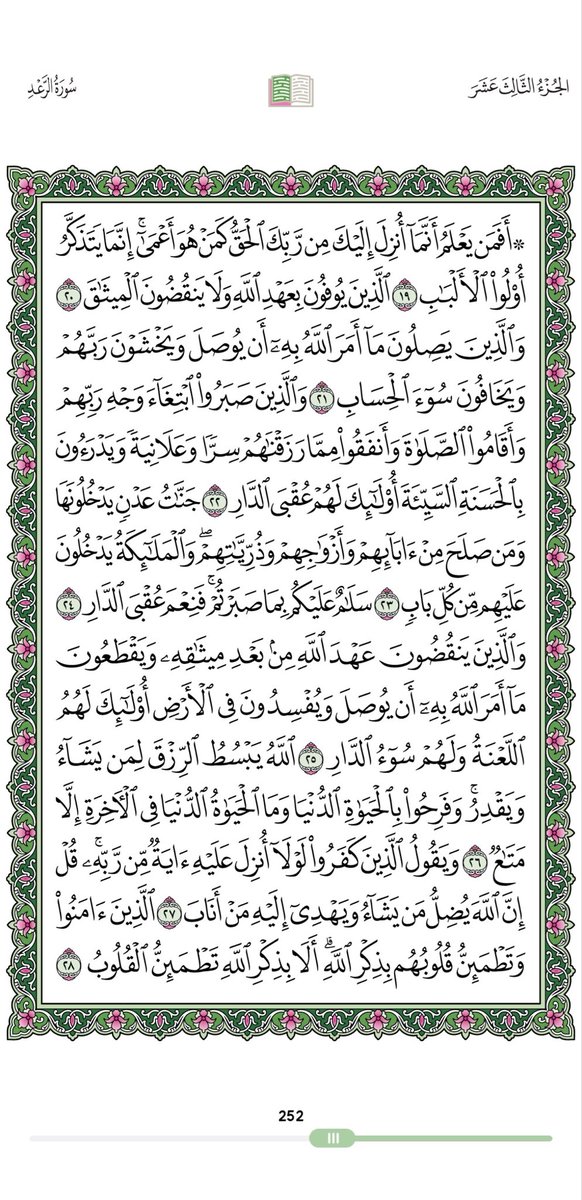 الجُزْءُ الثَّالِثَ عَشَرَ
سُورَةُ الرَّعْدِ
۞ أَفَمَن يَعْلَمُ أَنَّمَآ أُنزِلَ إِلَيْكَ مِن رَّبِّكَ ٱلْحَقُّ كَمَنْ هُوَ أَعْمَىٰٓۚ إِنَّمَا يَتَذَكَّرُ
أُو۟لُوا۟ ٱلْأَلْبَٰبِ ١٩ ٱلَّذِينَ يُوفُونَ بِعَهْدِ ٱللَّهِ وَلَا يَنقُضُونَ ٱلْمِيثَٰقَ ٢٠
وَٱلَّذِينَ يَصِلُونَ مَآ أَمَرَ ٱللَّهُ بِهِۦٓ أَن يُوصَلَ وَيَخْشَوْنَ رَبَّهُمْ
وَيَخَافُونَ سُوٓءَ ٱلْحِسَابِ ٢١ وَٱلَّذِينَ صَبَرُوا۟ ٱبْتِغَآءَ وَجْهِ رَبِّهِمْ
وَأَقَامُوا۟ ٱلصَّلَوٰةَ وَأَنفَقُوا۟ مِمَّا رَزَقْنَٰهُمْ سِرًّا وَعَلَانِيَةً وَيَدْرَءُونَ
بِٱلْحَسَنَةِ ٱلسَّيِّئَةَ أُو۟لَٰٓئِكَ لَهُمْ عُقْبَى ٱلدَّارِ ٢٢ جَنَّٰتُ عَدْنٍ يَدْخُلُونَهَا
وَمَن صَلَحَ مِنْ ءَابَآئِهِمْ وَأَزْوَٰجِهِمْ وَذُرِّيَّٰتِهِمْۖ وَٱلْمَلَٰٓئِكَةُ يَدْخُلُونَ
عَلَيْهِم مِّن كُلِّ بَابٍ ٢٣ سَلَٰمٌ عَلَيْكُم بِمَا صَبَرْتُمْۚ فَنِعْمَ عُقْبَى ٱلدَّارِ ٢٤
وَٱلَّذِينَ يَنقُضُونَ عَهْدَ ٱللَّهِ مِنۢ بَعْدِ مِيثَٰقِهِۦ وَيَقْطَعُونَ
مَآ أَمَرَ ٱللَّهُ بِهِۦٓ أَن يُوصَلَ وَيُفْسِدُونَ فِى ٱلْأَرْضِ أُو۟لَٰٓئِكَ لَهُمُ
ٱللَّعْنَةُ وَلَهُمْ سُوٓءُ ٱلدَّارِ ٢٥ ٱللَّهُ يَبْسُطُ ٱلرِّزْقَ لِمَن يَشَآءُ
وَيَقْدِرُۚ وَفَرِحُوا۟ بِٱلْحَيَوٰةِ ٱلدُّنْيَا وَمَا ٱلْحَيَوٰةُ ٱلدُّنْيَا فِى ٱلْءَاخِرَةِ إِلَّا
مَتَٰعٌ ٢٦ وَيَقُولُ ٱلَّذِينَ كَفَرُوا۟ لَوْلَآ أُنزِلَ عَلَيْهِ ءَايَةٌ مِّن رَّبِّهِۦۚ قُلْ
إِنَّ ٱللَّهَ يُضِلُّ مَن يَشَآءُ وَيَهْدِىٓ إِلَيْهِ مَنْ أَنَابَ ٢٧ ٱلَّذِينَ ءَامَنُوا۟
وَتَطْمَئِنُّ قُلُوبُهُم بِذِكْرِ ٱللَّهِۗ أَلَا بِذِكْرِ ٱللَّهِ تَطْمَئِنُّ ٱلْقُلُوبُ ٢٨
252